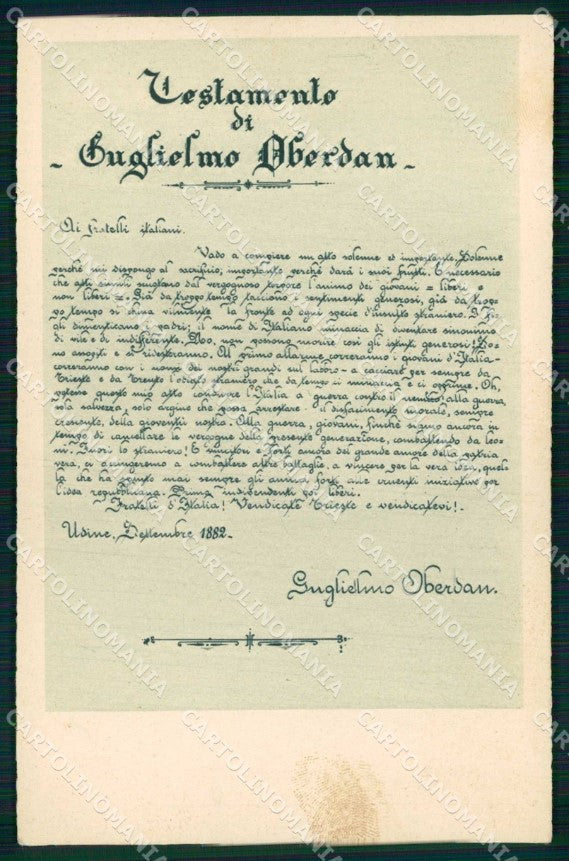 Testamento
di
- Guglielmo Oberdan -
Ai fratelli italiani.
Vado a compiere un atto solenne ed importante. Solenne
perché mi dispongo al sacrificio, importante perché darà i suoi frutti. È necessario
che atti simili scuotano dal vergognoso torpore l'animo dei giovani = liberi e
non liberi = . Già da troppo tempo tacciono i sentimenti generosi, già da trop-
po tempo si china vilmente la fronte ad ogni specie d'insulto straniero. I fi-
gli dimenticano i padri; il nome di Italiano minaccia di diventare sinonimo
di vile e di indifferente. No, non possono morire così gli istinti generosi! So-
no assopiti e si ridesteranno. Al primo allarme correranno i giovani d'Italia-
correranno con i nomi dei nostri grandi sul labbro - a cacciare per sempre da
Trieste e da Trento l'odiato straniero che da tempo ci minaccia e ci opprime. Oh,
potesse questo mio atto condurre l'Italia a guerra contro il nemico! Alla guerra,
sola salvezza, solo argine che possa arrestare il disfacimento morale, sempre
crescente, della gioventù nostra. Alla guerra, giovani, finché siamo ancora in
tempo di cancellare le vergogne della presente generazione, combattendo da leo-
ni. Fuori lo straniero! E vincitori e forti ancora del grande amore della patria
vera, ci accingeremo a combattere altre battaglie, a vincere per la vera idea, quel-
la che ha spinto mai sempre gli animi forti alle cruenti iniziative per
l'idea repubblicana. Prima indipendenti poi liberi.
Fratelli d'Italia! Vendicate Trieste e vendicatevi! -
Udine, Settembre 1882 -
Guglielmo Oberdan.
CARTOLINOMANIA